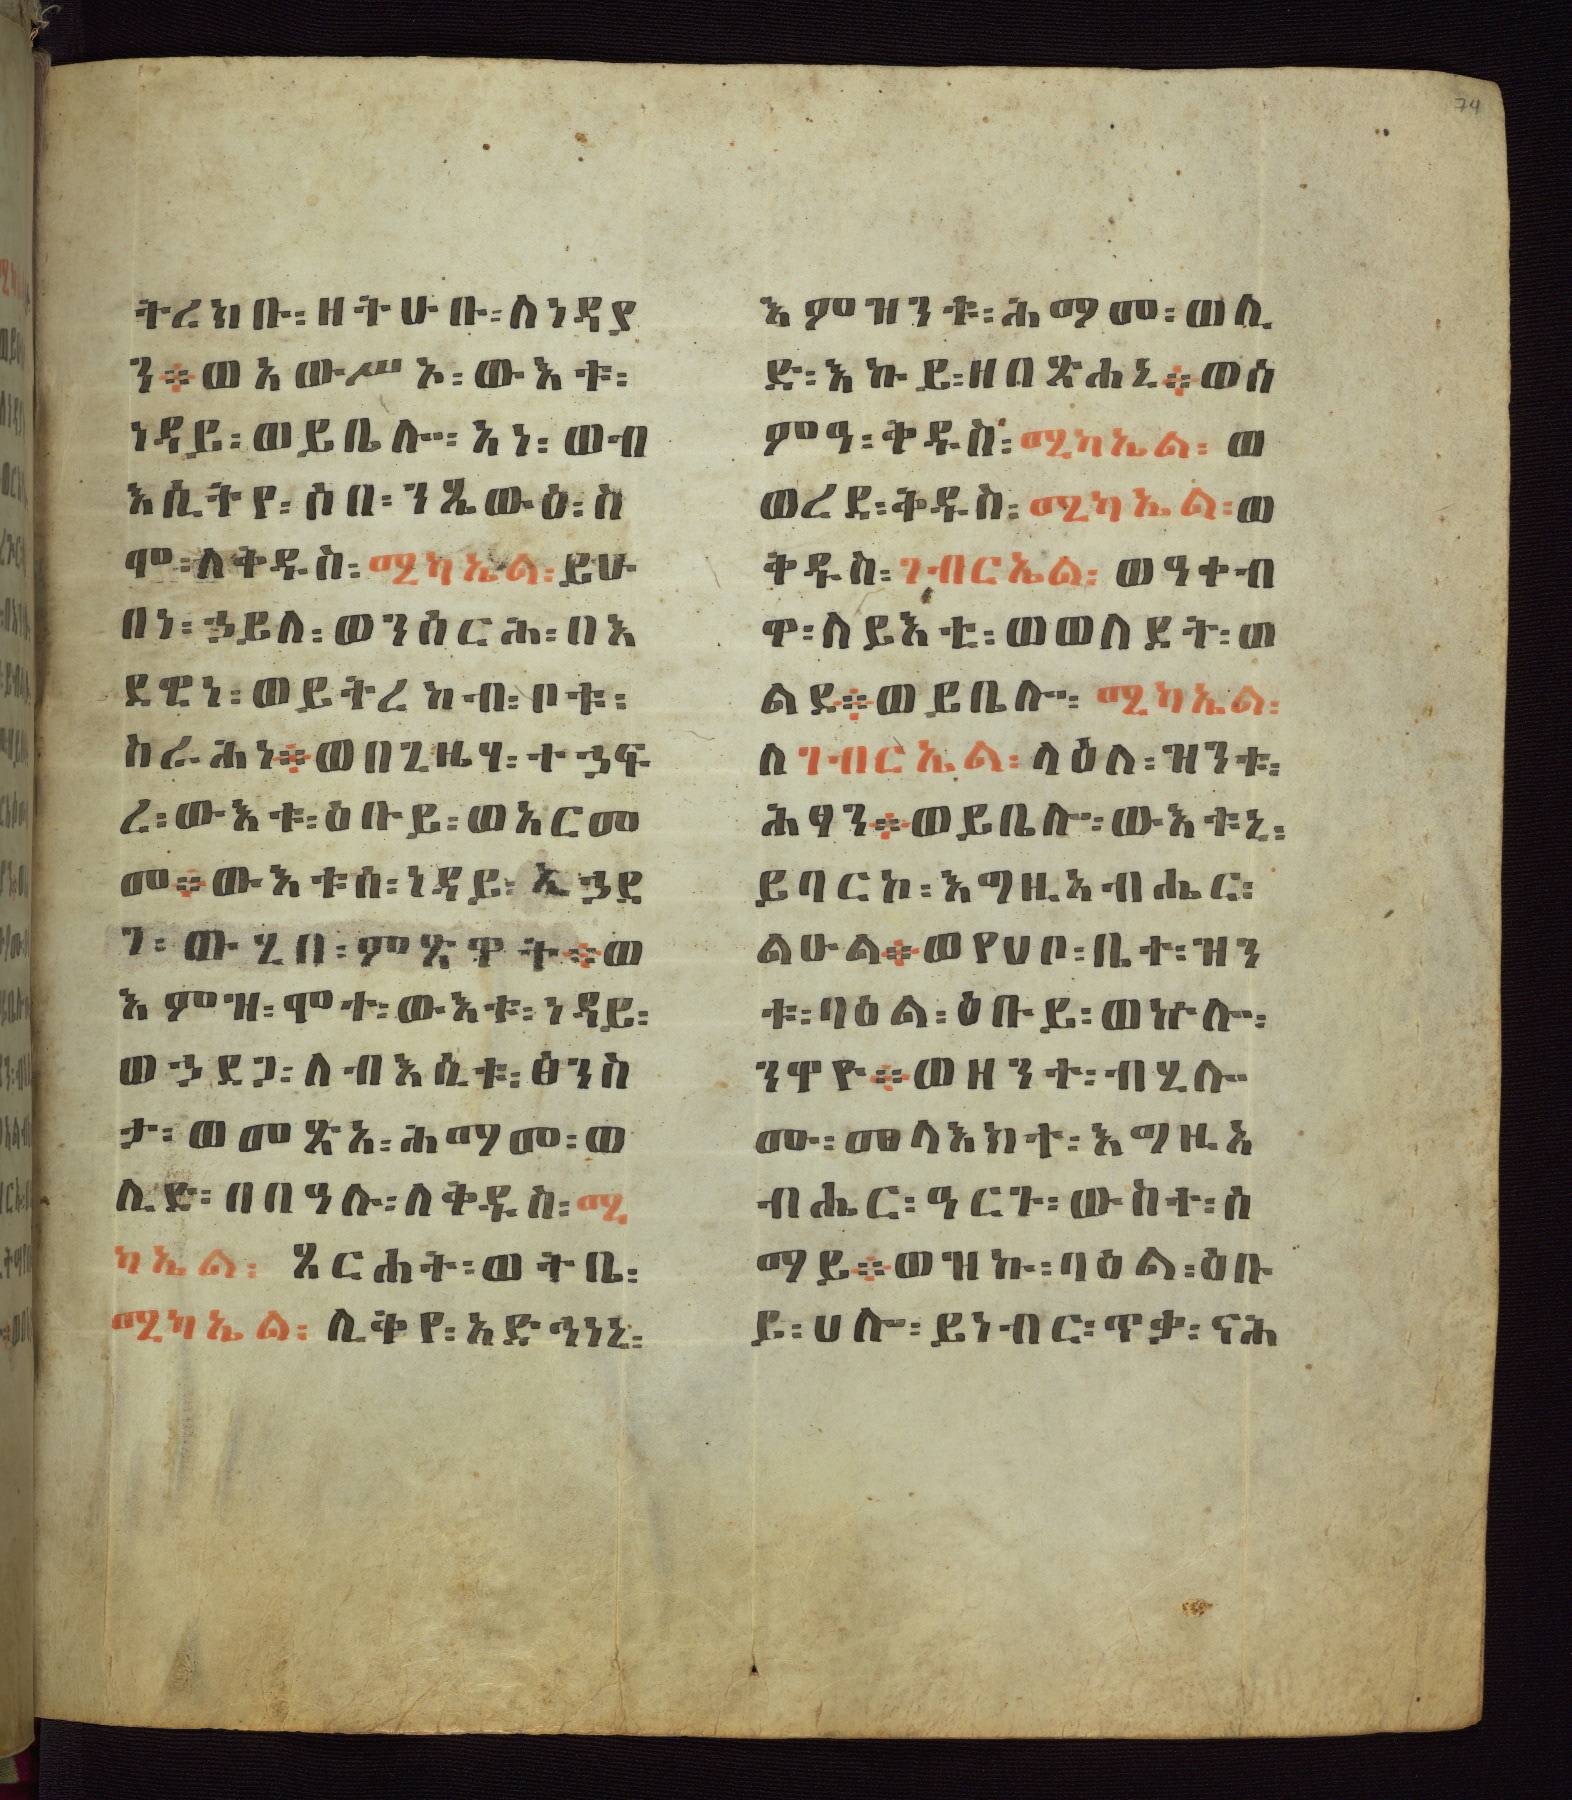 74
ትረክቡ፡ዘትሁቡ፡ለነዳያ
ን፨ወአውሥኦ፡ውእቱ፡
ነዳይ፡ወይቤሎ፡አነ፡ወብ
እሲትየ፡ሶበ፡ንጼውዕ፡ስ
ሞ፡ለቅዱስ፡ሚካኤል፡ይሁ
በነ፡ኃይለ፡ወንሰርሕ፡በእ
ደዊነ፡ወይትረከብ፡ቦቱ፡
ስራሕነ፨ወበጊዜሃ፡ተኃፍ
ረ፡ውእቱ፡ዕቡይ፡ወአርመ
መ፨ውእቱሰ፡ነዳይ፡ኢኃደ
ገ፡ውሂበ፡ምጽዋት፨ወ
እምዝ፡ሞተ፡ውእቱ፡ነዳይ፡
ወኃደጋ፡ለብእሲቱ፡ፅንስ
ታ፡ወመጽአ፡ሕማመ፡ወ
ሊድ፡በበዓሉ፡ለቅዱስ፡ሚ
ካኤል፡ጸርሐት፡ወትቤ፡
ሚካኤል፡ሊቅየ፡አድኅነኒ፡
እምዝንቱ፡ሕማመ፡ወሊ
ድ፡እኩይ፡ዘበጽሐኒ፨ወሰ
ምዓ፡ቅዱስ፡ሚካኤል፡ወ
ወረደ፡ቅዱስ፡ሚካኤል፡ወ
ቅዱስ፡ገብርኤል፡ወዓቀብ
ዋ፡ለይእቲ፡ወወለደት፡ወ
ልደ፨ወይቤሎ፡ሚካኤል፡
ለገብርኤል፡ላዕለ፡ዝንቱ፡
ሕፃን፨ወይቤሎ፡ውእቱኒ፡
ይባርኮ፡እግዚአብሔር፡
ልሁል፨ወየሀቦ፡ቤተ፡ዝን
ቱ፡ባዕል፡ዕቡይ፡ወኵሎ፡
ንዋዮ፨ወዘንተ፡ብሂሎ
ሙ፡መላእክተ፡እግዚአ
ብሔር፡ዓርጉ፡ውስተ፡ሰ
ማይ፨ወዝኩ፡ባዕል፡ዕቡ
ይ፡ሀሎ፡ይነብር፡ጥቃ፡ናሕ